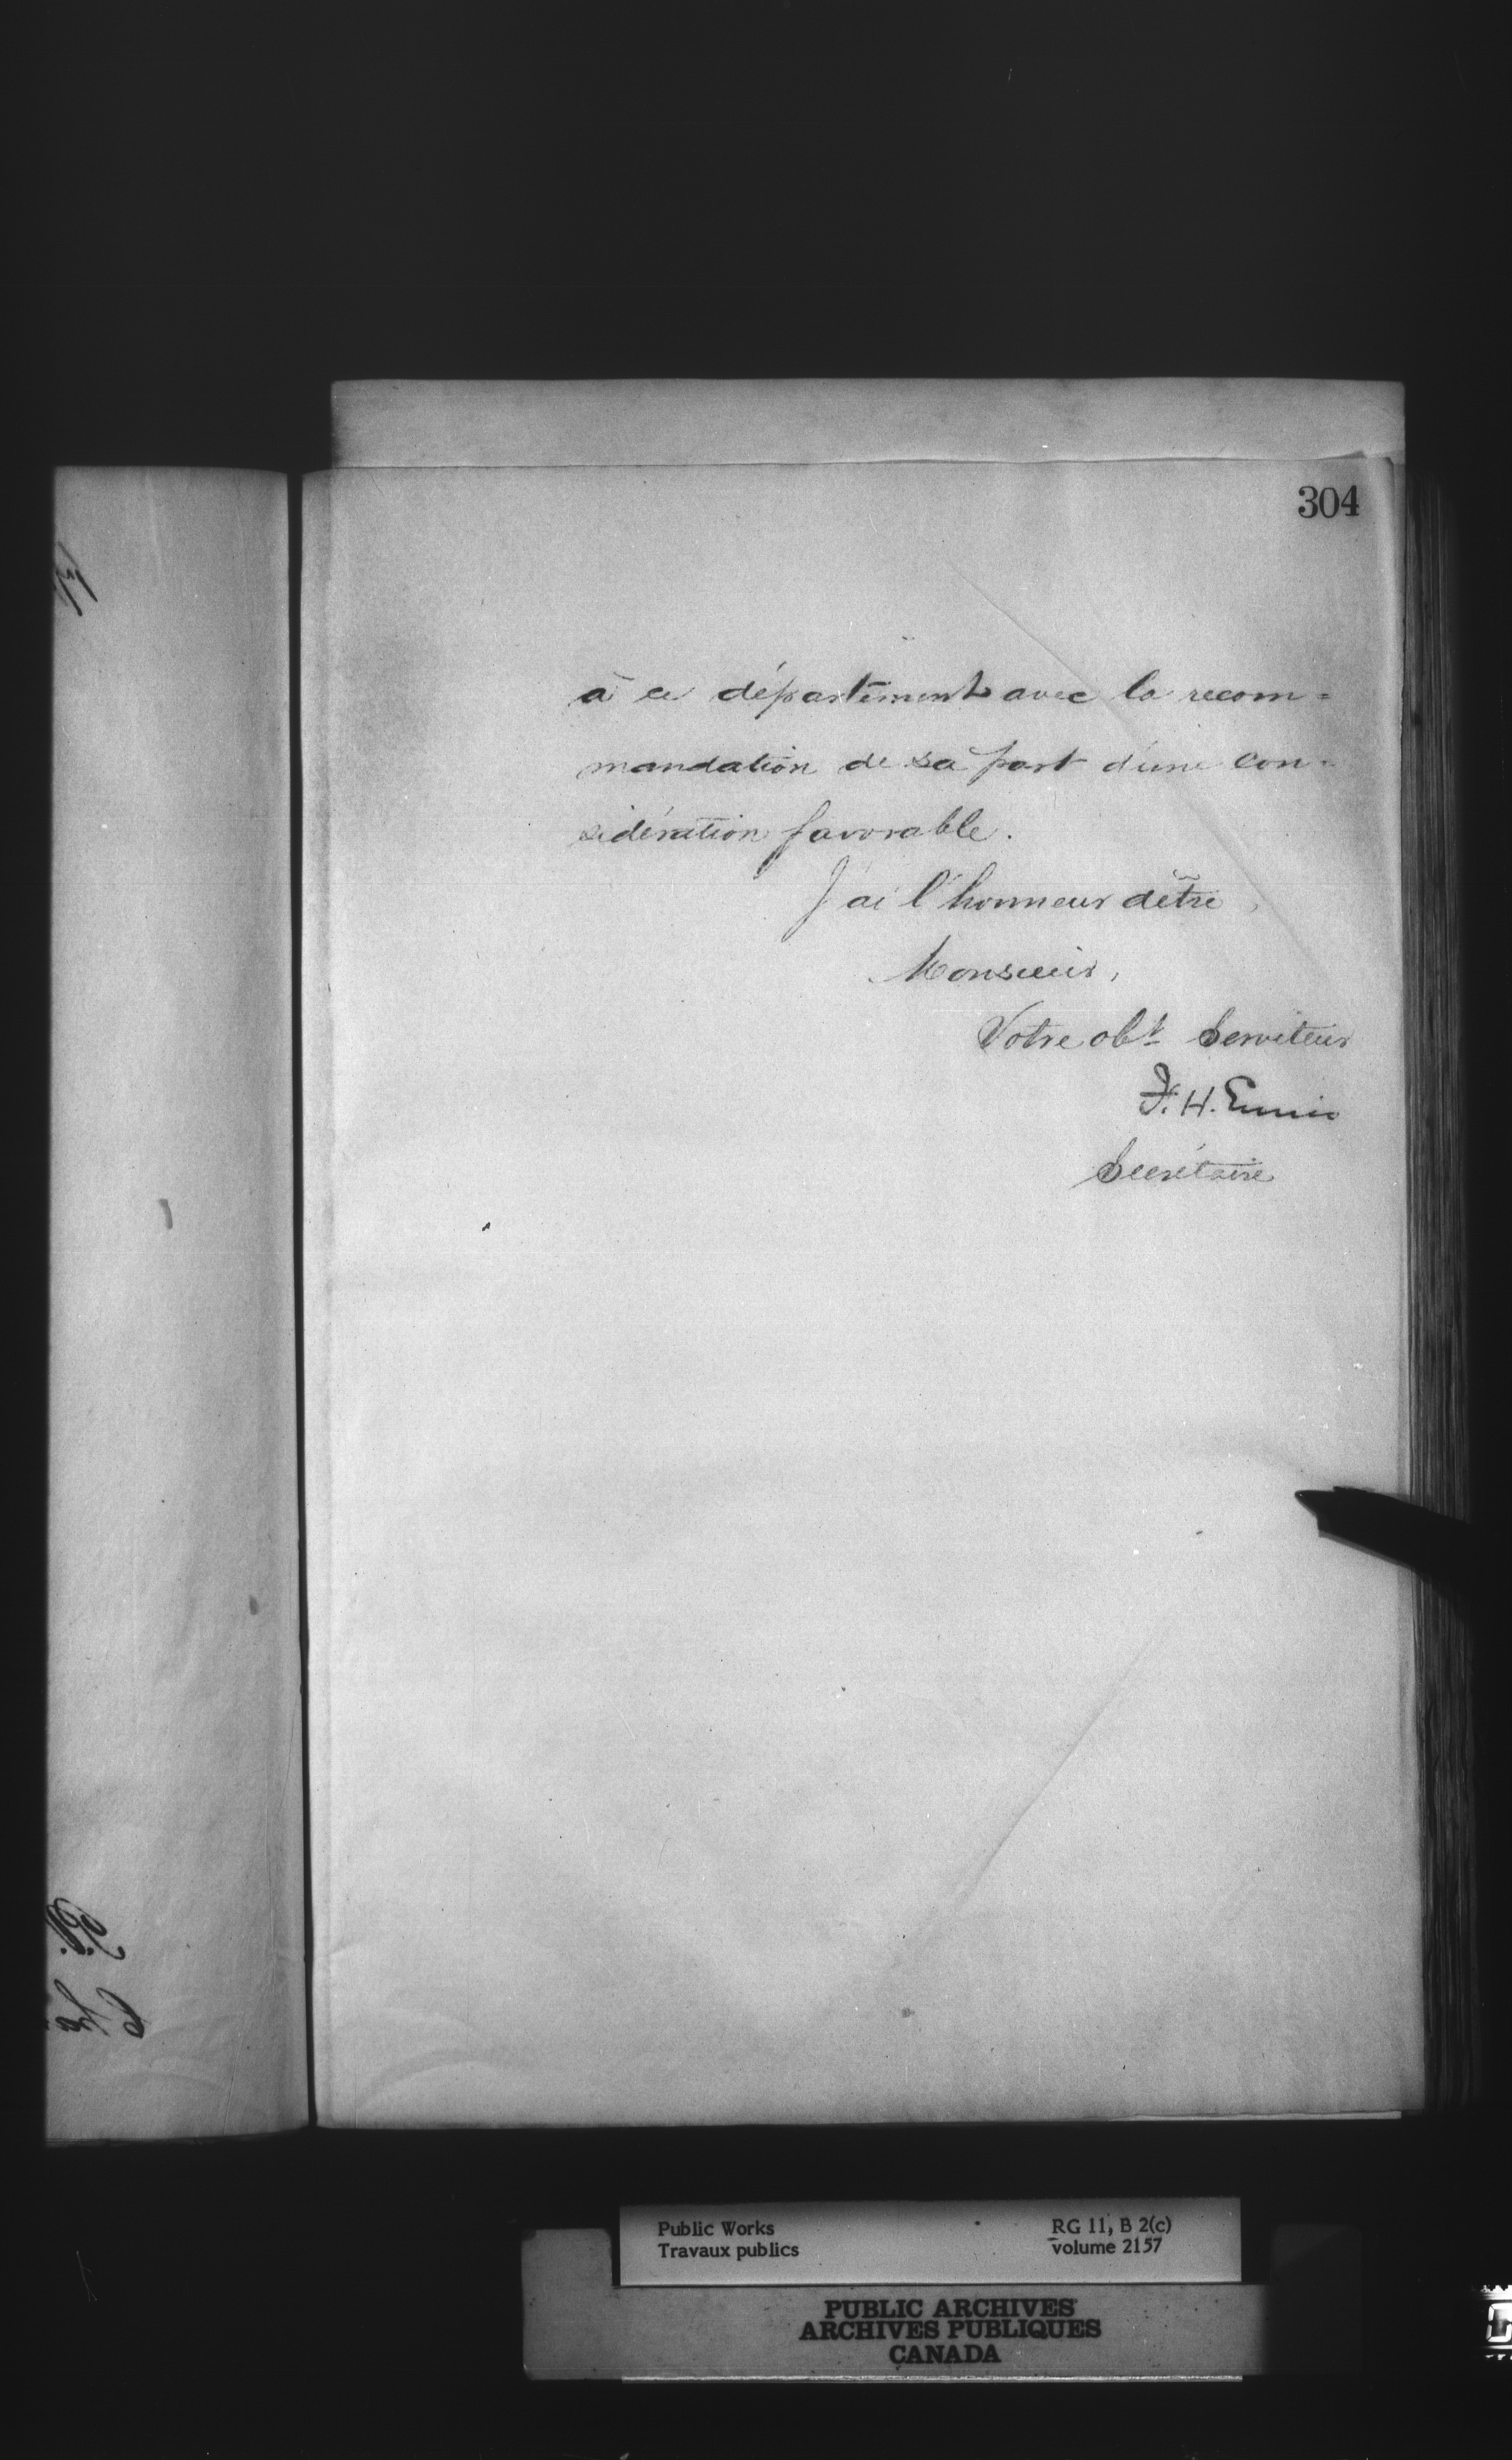 304
à ce département avec la recom=
mandation de sa part d'une con=
sidération favorable.
J'ai l'honneur d'être,
Monsieur,
Votre obt Serviteur
F. H. Ennis
Secrétaire
Public Works
Travaux publics
RG 11, B 2(c)
volume 2157
PUBLIC ARCHIVES
ARCHIVES PUBLIQUES
CANADA